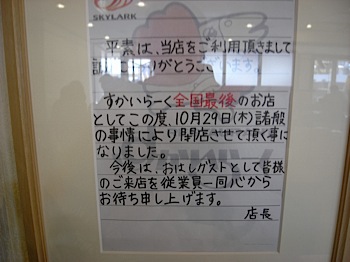 SKYLARK
平素は、当店をご利用頂きまして
誠にありがとうございます。
すかいらーく全国最後のお店
としてこの度、10月29日(木)諸般
の事情により閉店させて頂く事に
なりました。
今後は、おはしガストとして皆様
のご来店を従業員一同心から
お待ち申し上げます。
店長